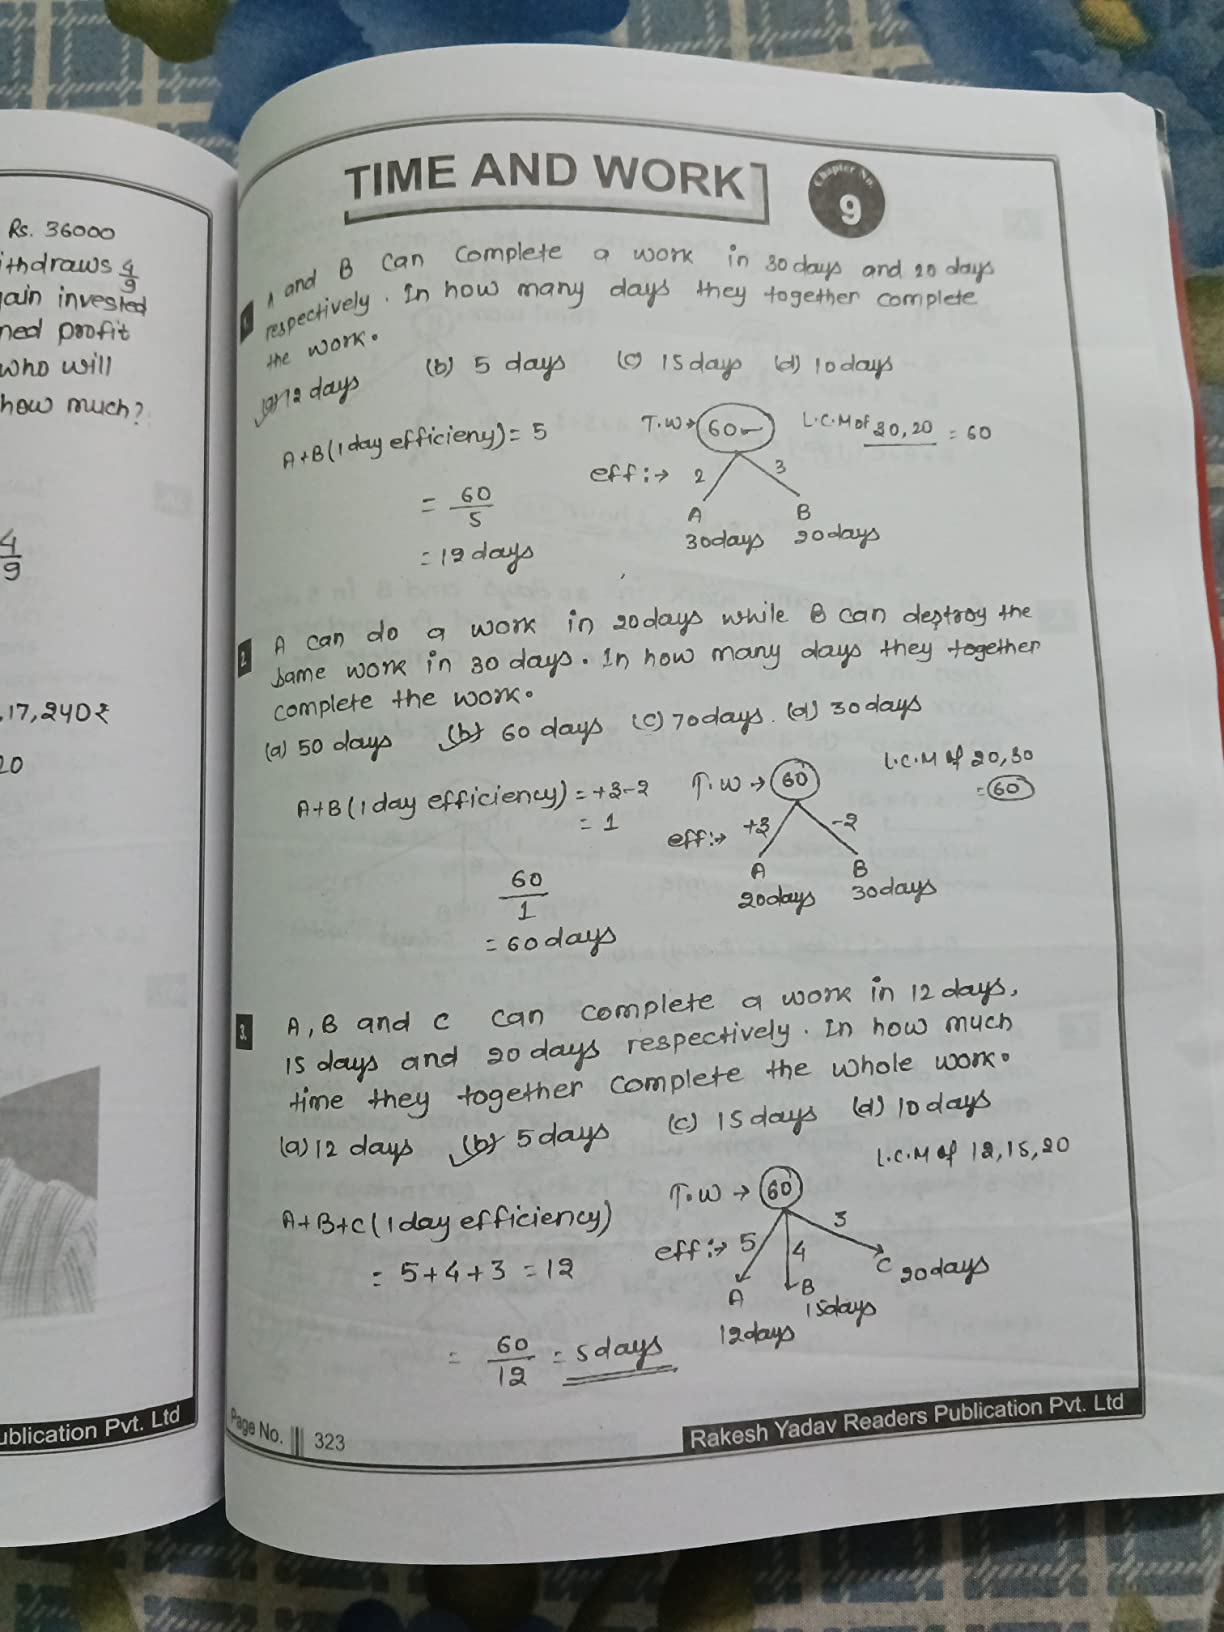 Rs. 36000
ithdraws 4/9
gain invested
ned profit
who will
how much?
4/9
.17,240₹
20
ublication Pvt. Ltd
TIME AND WORK
Chapter No. 9
1. A and B can complete a work in 30 days and 20 days
respectively. In how many days they together complete
the work.
(a) 12 days (b) 5 days (c) 15 days (d) 10 days
A+B (1 day efficieny) = 5
T.W→ 60 L.C.M of 30, 20 = 60
eff:→ 2 3
= 60/5
A B
30days 20days
= 12 days
2. A can do a work in 20 days while B can destroy the
same work in 30 days. In how many days they together
complete the work.
(a) 50 days (b) 60 days (c) 70 days. (d) 30 days
A+B (1 day efficiency) = +3-2
= 1
T.W → 60 L.C.M of 20, 30
= 60
eff:→ +3 -2
A B
20days 30days
60/1
= 60 days
3. A, B and C can complete a work in 12 days,
15 days and 20 days respectively. In how much
time they together complete the whole work.
(a) 12 days (b) 5 days (c) 15 days (d) 10 days
L.C.M of 12, 15, 20
T.W → 60
A+B+C (1 day efficiency)
eff:→ 5 4 3
= 5+4+3 = 12
A B C 20days
15days
12days
= 60/12 = 5 days
Page No. 323
Rakesh Yadav Readers Publication Pvt. Ltd